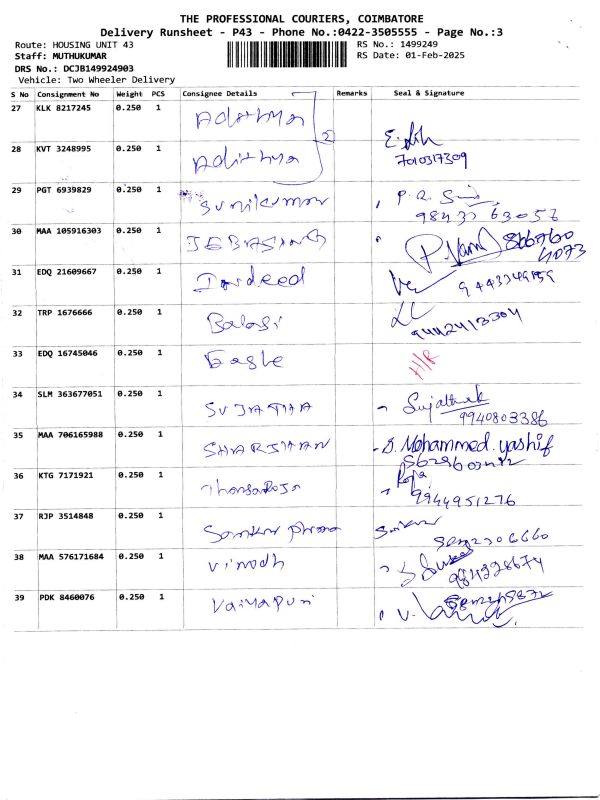 THE PROFESSIONAL COURIERS, COIMBATORE
Delivery Runsheet - P43 - Phone No.:0422-3505555 - Page No.:3
Route: HOUSING UNIT 43 RS No.: 1499249
Staff: MUTHUKUMAR RS Date: 01-Feb-2025
DRS No.: DCJB149924903
Vehicle: Two Wheeler Delivery
S No Consignment No Weight PCS Consignee Details Remarks Seal & Signature
27 KLK 8217245 0.250 1 Adithya
2
28 KVT 3248995 0.250 1 Adithya
7010317309
29 PGT 6939829 0.250 1 Sunilkumar
98437 63056
30 MAA 105916303 0.250 1 JEBASINGH 866760
4073
31 EDQ 21609667 0.250 1
32 TRP 1676666 0.250 1 Balaji
9442413304
33 EDQ 16745046 0.250 1 Eagle H/R
34 SLM 363677051 0.250 1 SUJATHA Sujatha
9940803386
35 MAA 706165988 0.250 1 SHARJHAN S. Mohammed yashif
36 KTG 7171921 0.250 1 Roja
9944951276
37 RJP 3514848 0.250 1
38 MAA 576171684 0.250 1 Vinodh
39 PDK 8460076 0.250 1 Vaiyapuri